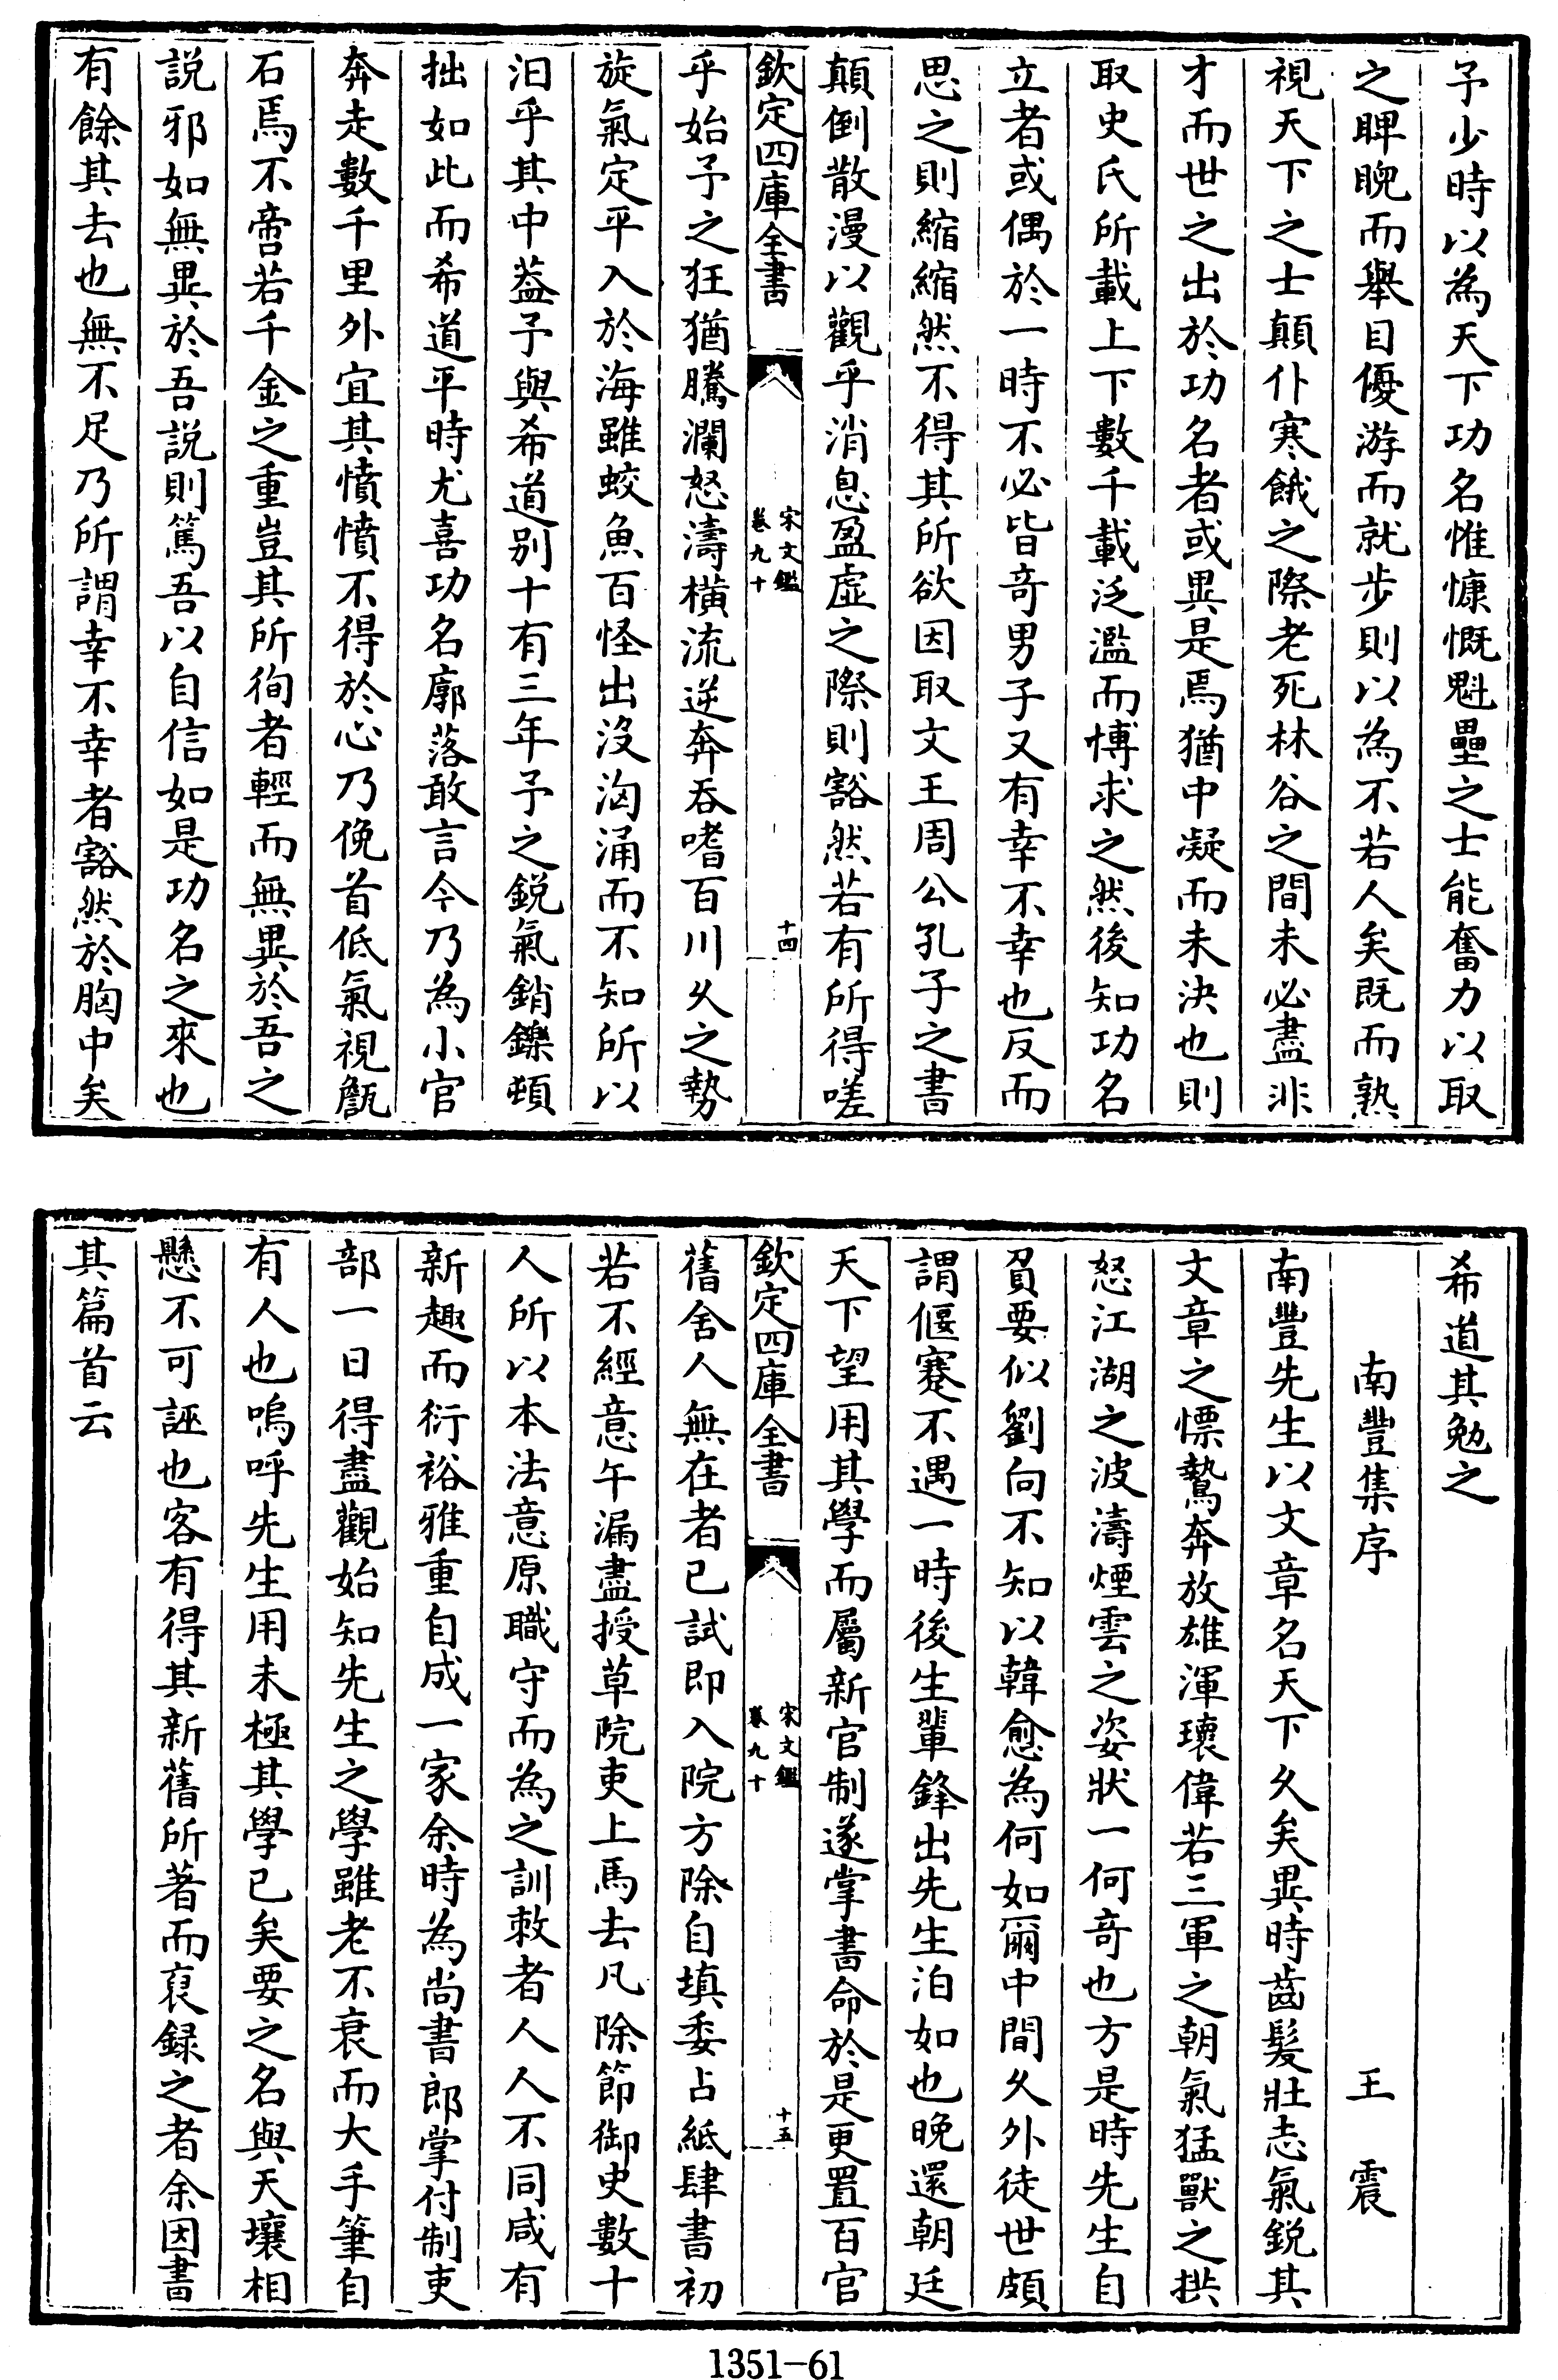 予少時以為天下功名惟慷慨魁壘之士能奮力以取
之睥睨而舉目優游而就步則以為不若人矣既而熟
視天下之士顛仆寒餓之際老死林谷之間未必盡非
才而世之出於功名者或異是焉猶中凝而未決也則
取史氏所載上下數千載泛濫而博求之然後知功名
立者或偶於一時不必皆竒男子又有幸不幸也反而
思之則縮縮然不得其所欲因取文王周公孔子之書
顛倒散漫以觀乎消息盈虛之際則豁然若有所得嗟
欽定四庫全書
宋文鑑
卷九十
十四
乎始予之狂猶騰瀾怒濤橫流逆奔吞嗜百川乆之勢
旋氣定平入於海雖蛟魚百怪出沒洶涌而不知所以
汩乎其中葢予與希道别十有三年予之鋭氣銷鑠頓
拙如此而希道平時尤喜功名廓落敢言今乃為小官
奔走數千里外宜其憤憤不得於心乃俛首低氣視甔
石焉不啻若千金之重豈其所徇者輕而無異於吾之
説邪如無異於吾説則篤吾以自信如是功名之來也
有餘其去也無不足乃所謂幸不幸者豁然於胸中矣
希道其勉之
南豐集序
王震
南豐先生以文章名天下乆矣異時齒髪壯志氣鋭其
文章之慓鷙奔放雄渾瓌偉若三軍之朝氣猛獸之抶
怒江湖之波濤煙雲之姿狀一何竒也方是時先生自
負要似劉向不知以韓愈為何如爾中間乆外徒世頗
謂偃蹇不遇一時後生輩鋒出先生泊如也晚還朝廷
天下望用其學而屬新官制遂掌書命於是更置百官
欽定四庫全書
宋文鑑
卷九十
十五
舊舍人無在者已試即入院方除自填委占紙肆書初
若不經意午漏盡授草院吏上馬去凡除節御史數十
人所以本法意原職守而為之訓敕者人人不同咸有
新趣而衍裕雅重自成一家余時為尚書郎掌付制吏
部一日得盡觀始知先生之學雖老不衰而大手筆自
有人也嗚呼先生用未極其學已矣要之名與天壤相
懸不可誣也客有得其新舊所著而裒録之者余因書
其篇首云
1351-61